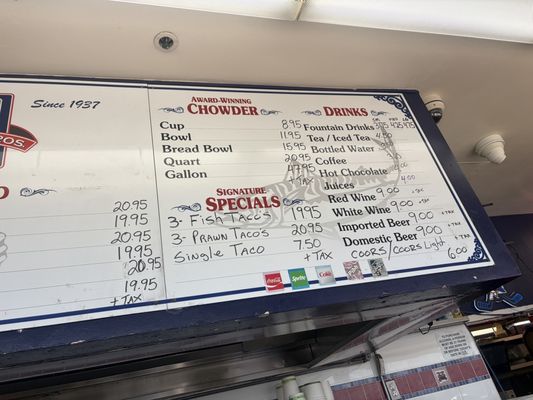 Since 1937
ROS.
20.95
19.95
20.95
19.95
20.95
19.95
+ TAX
AWARD-WINNING
CHOWDER
Cup 8.95
Bowl 11.95
Bread Bowl 15.95
Quart 20.95
Gallon 47.95
+ TAX
SIGNATURE
SPECIALS
3- FISH TACO'S 19.95
3- PRAWN TACO'S 20.95
SINGLE TACO 7.50
+ TAX
DRINKS
Fountain Drinks 3.75 4.25 4.75
Tea / Iced Tea 4.50
Bottled Water
Coffee
Hot Chocolate
Juices 4.00
Red Wine 9.00 + TAX
White Wine 9.00 + TAX
Imported Beer 9.00 + TAX
Domestic Beer 9.00 + TAX
COORS/COORS LIGHT 6.00 + TAX
Coca-Cola
Sprite
Coke